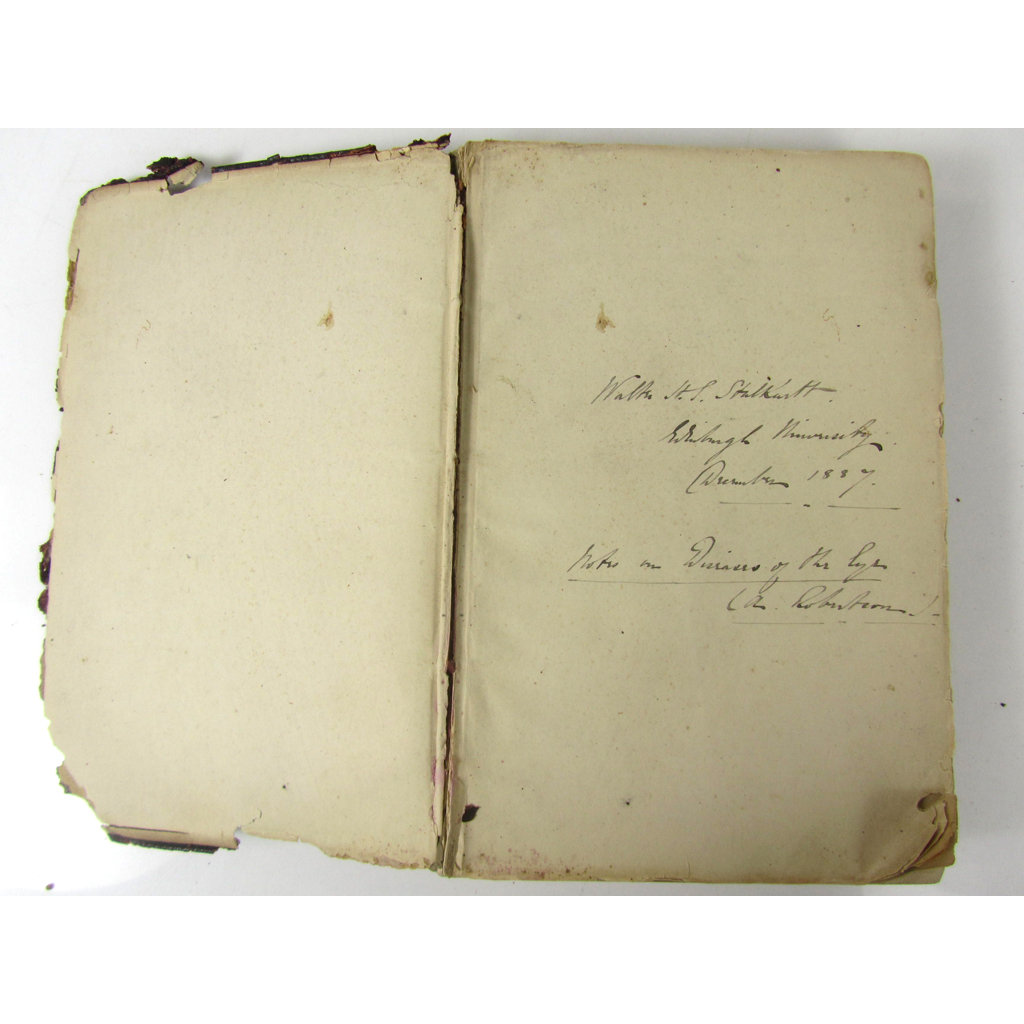 Walter H. S. Stalkartt.
Edinburgh University.
December 1887.
Notes on Diseases of the Eye
(A. Robertson.)